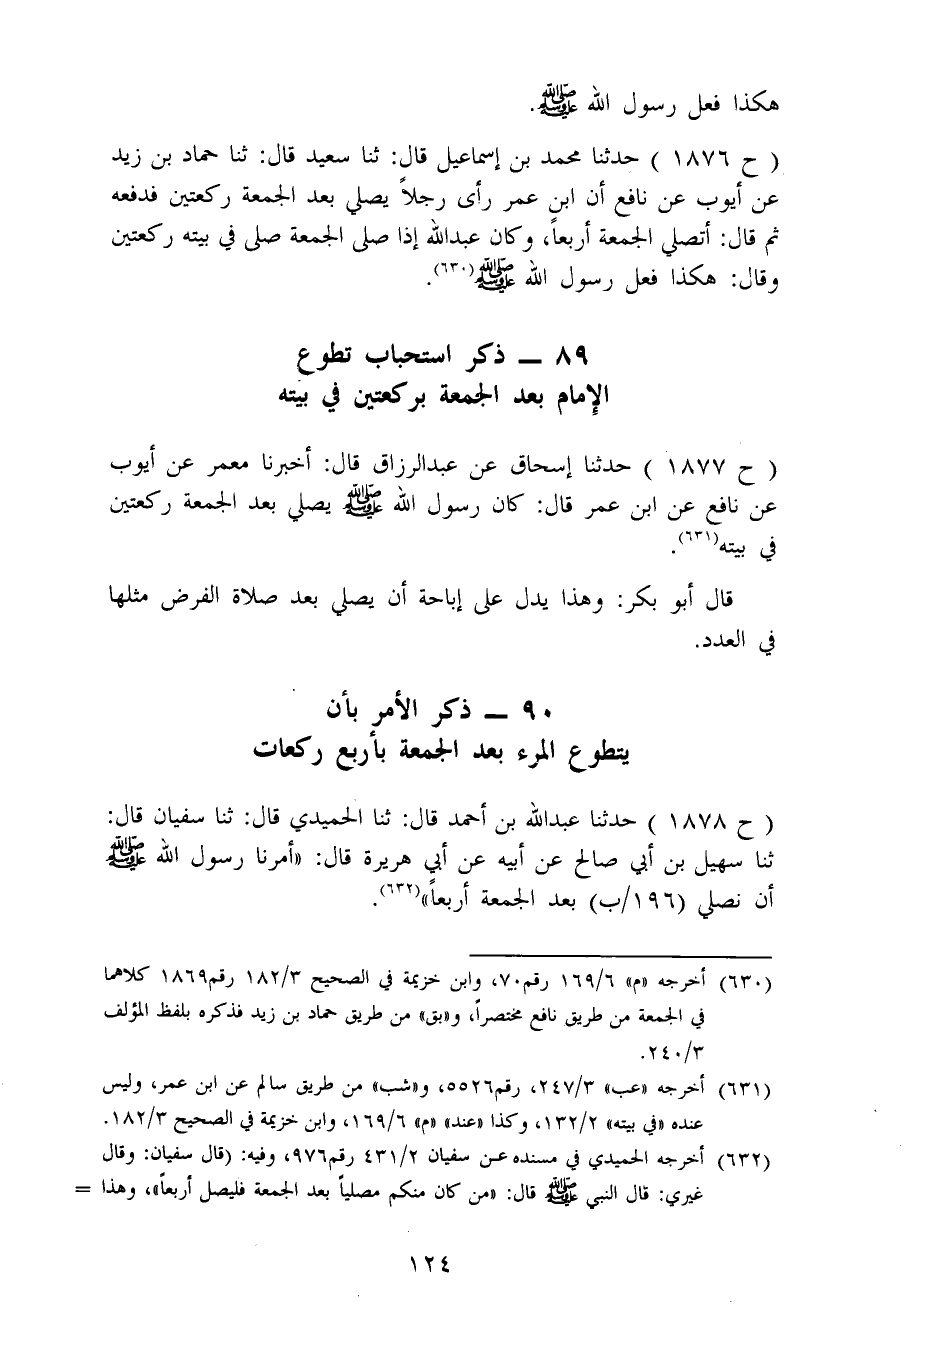 هكذا فعل رسول الله ﷺ.
( ح ١٨٧٦ ) حدثنا محمد بن إسماعيل قال: ثنا سعيد قال: ثنا حماد بن زيد
عن أيوب عن نافع أن ابن عمر رأى رجلاً يصلي بعد الجمعة ركعتين فدفعه
ثم قال: أتصلي الجمعة أربعاً، وكان عبدالله إذا صلى الجمعة صلى في بيته ركعتين
وقال: هكذا فعل رسول الله ﷺ(٦٣٠).
٨٩ ــ ذكر استحباب تطوع
الإمام بعد الجمعة بركعتين في بيته
( ح ١٨٧٧ ) حدثنا إسحاق عن عبدالرزاق قال: أخبرنا معمر عن أيوب
عن نافع عن ابن عمر قال: كان رسول الله ﷺ يصلي بعد الجمعة ركعتين
في بيته(٦٣١).
قال أبو بكر: وهذا يدل على إباحة أن يصلي بعد صلاة الفرض مثلها
في العدد.
٩٠ ــ ذكر الأمر بأن
يتطوع المرء بعد الجمعة بأربع ركعات
( ح ١٨٧٨ ) حدثنا عبدالله بن أحمد قال: ثنا الحميدي قال: ثنا سفيان قال:
ثنا سهيل بن أبي صالح عن أبيه عن أبي هريرة قال: «أمرنا رسول الله ﷺ
أن نصلي (١٩٦/ب) بعد الجمعة أربعاً»(٦٣٢).
(٦٣٠) أخرجه «م» ١٦٩/٦ رقم٧٠، وابن خزيمة في الصحيح ١٨٢/٣ رقم١٨٦٩ كلاهما
في الجمعة من طريق نافع مختصراً، و«بق» من طريق حماد بن زيد فذكره بلفظ المؤلف
٢٤٠/٣.
(٦٣١) أخرجه «عب» ٢٤٧/٣، رقم٥٥٢٦، و«شب» من طريق سالم عن ابن عمر، وليس
عنده «في بيته» ١٣٢/٢، وكذا «عند» «م» ١٦٩/٦، وابن خزيمة في الصحيح ١٨٢/٣.
(٦٣٢) أخرجه الحميدي في مسنده عن سفيان ٤٣١/٢ رقم٩٧٦، وفيه: (قال سفيان: وقال
غيري: قال النبي ﷺ قال: «من كان منكم مصلياً بعد الجمعة فليصل أربعاً»، وهذا =
١٢٤